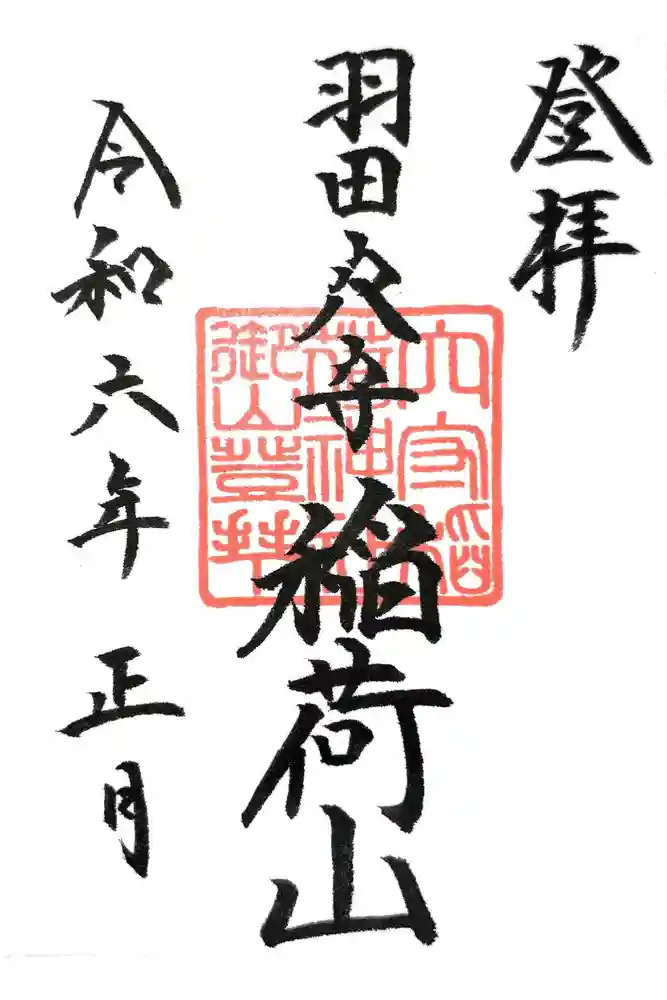 登拝
羽田穴守稲荷山
令和六年 正月
穴守稲
荷神社
御山登拝